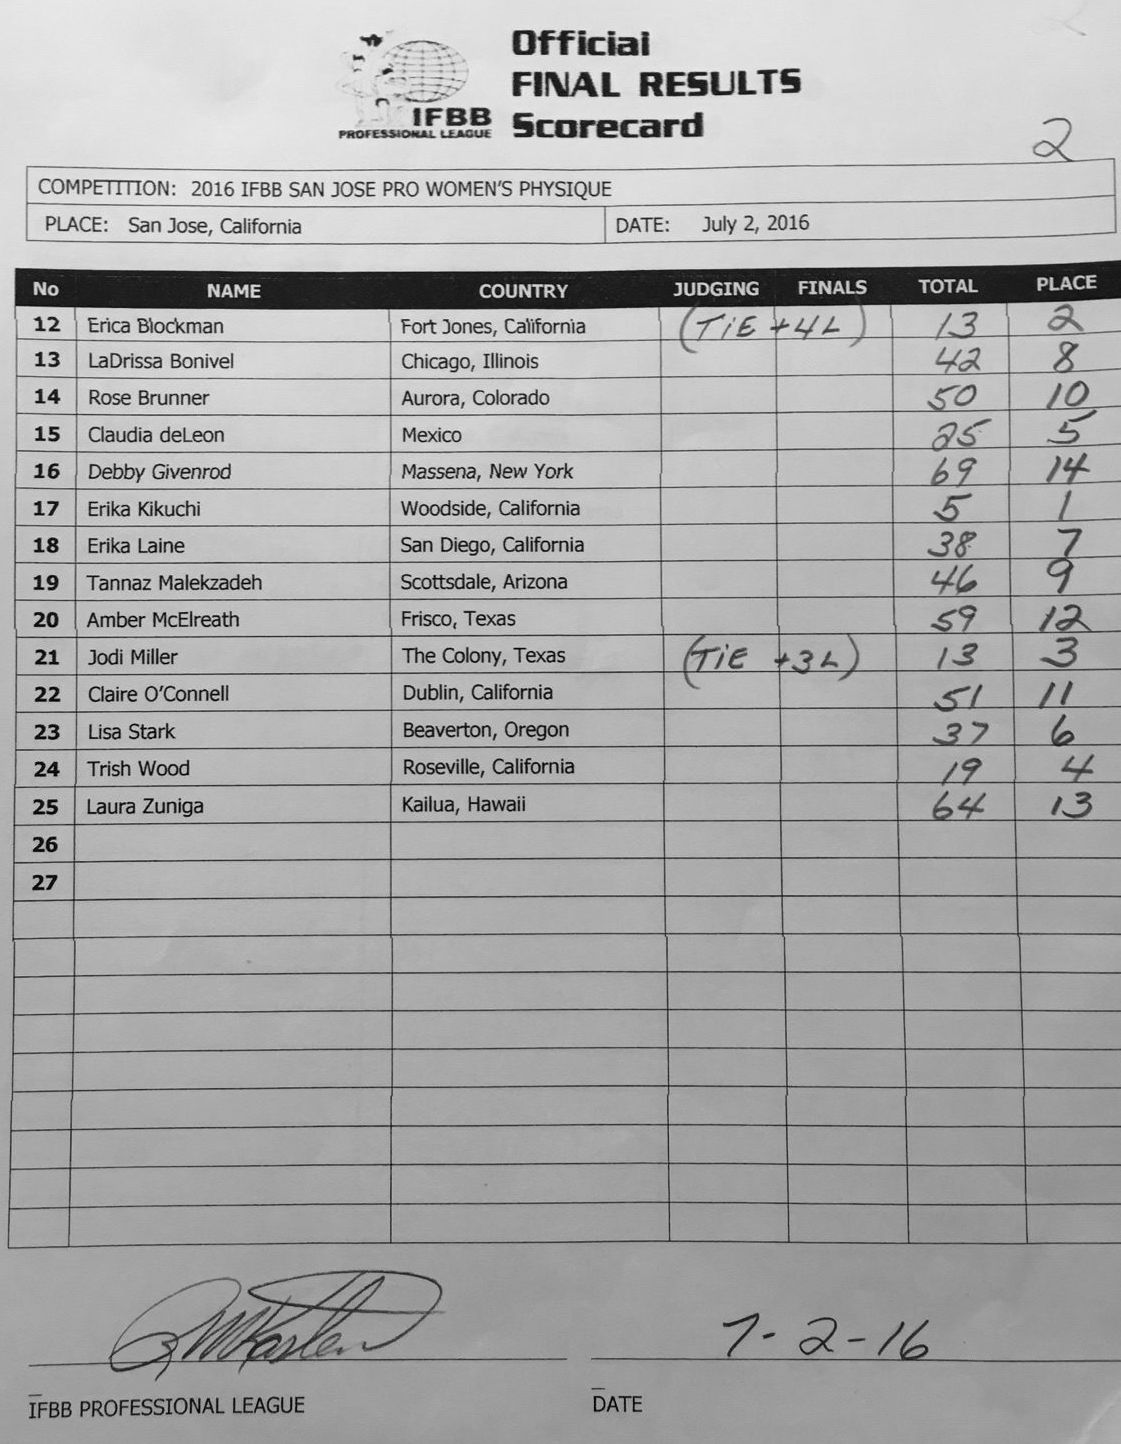 Official
FINAL RESULTS
Scorecard
IFBB
PROFESSIONAL LEAGUE
2
COMPETITION: 2016 IFBB SAN JOSE PRO WOMEN'S PHYSIQUE
PLACE: San Jose, California DATE: July 2, 2016
No NAME COUNTRY JUDGING FINALS TOTAL PLACE
12 Erica Blockman Fort Jones, California (TiE +4L) 13 2
13 LaDrissa Bonivel Chicago, Illinois 42 8
14 Rose Brunner Aurora, Colorado 50 10
15 Claudia deLeon Mexico 25 5
16 Debby Givenrod Massena, New York 69 14
17 Erika Kikuchi Woodside, California 5 1
18 Erika Laine San Diego, California 38 7
19 Tannaz Malekzadeh Scottsdale, Arizona 46 9
20 Amber McElreath Frisco, Texas 59 12
21 Jodi Miller The Colony, Texas (TiE +3L) 13 3
22 Claire O'Connell Dublin, California 51 11
23 Lisa Stark Beaverton, Oregon 37 6
24 Trish Wood Roseville, California 19 4
25 Laura Zuniga Kailua, Hawaii 64 13
26
27
7-2-16
IFBB PROFESSIONAL LEAGUE DATE